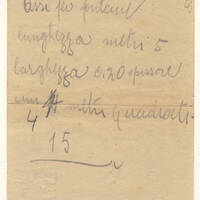 Assi per
lunghezza metri 5
larghezza 0.20 spessore
4 metri quadrati
15